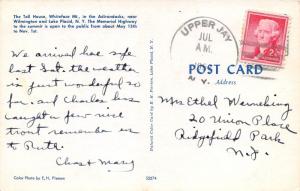 The Toll House, Whiteface Mt., in the Adirondacks, near
Wilmington and Lake Placid, N. Y. The Memorial Highway
to the summit is open to the public from about May 15th
to Nov. 1st.
We arrived here safe
last Sat. the weather
is just wonderful so
far. and Charles has
caught a few nice
trout remember us
to Ruth.
Chas & Mary
Color Photo by E.H.
52274
UPPER JAY
JUL
A M.
N. Y.
2¢
POST CARD
Address
Mrs Ethel
20 Union Place
Ridgefield Park
N.J.